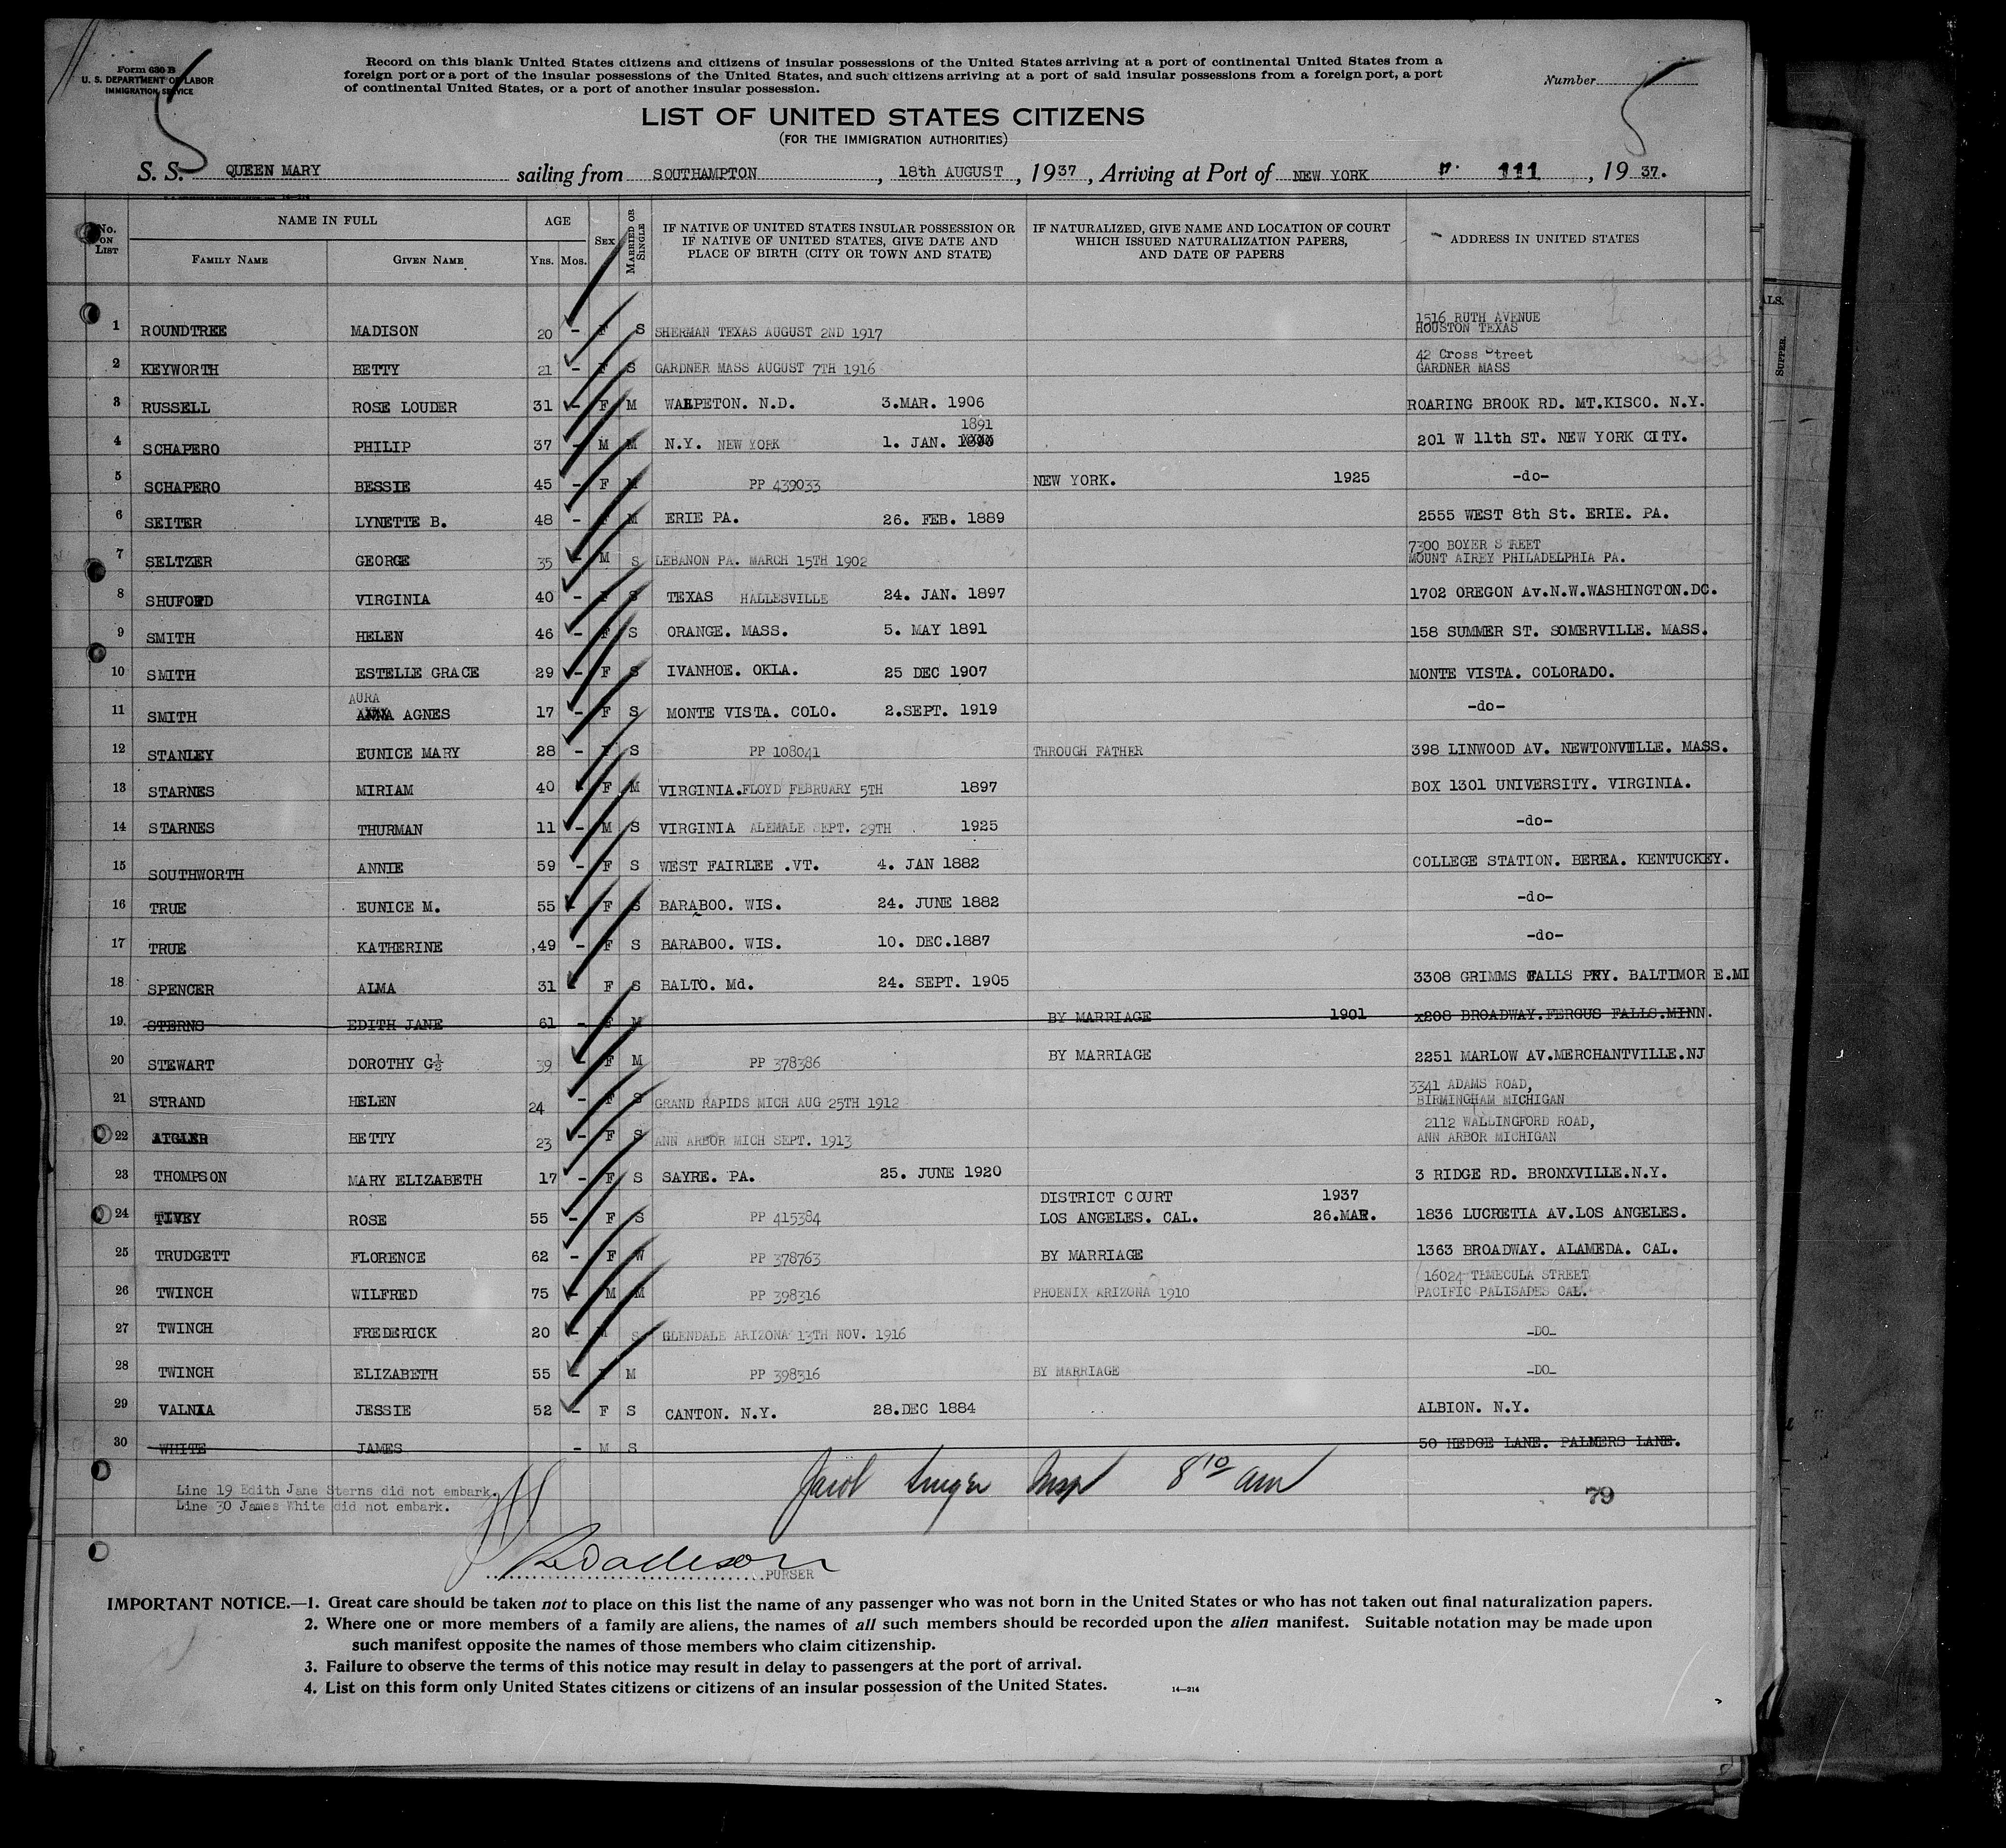 Form 630 B
U. S. DEPARTMENT OF LABOR
IMMIGRATION SERVICE
Record on this blank United States citizens and citizens of insular possessions of the United States arriving at a port of continental United States from a
foreign port or a port of the insular possessions of the United States, and such citizens arriving at a port of said insular possessions from a foreign port, a port
of continental United States, or a port of another insular possession.
Number 5
5
LIST OF UNITED STATES CITIZENS
(FOR THE IMMIGRATION AUTHORITIES)
S. S. QUEEN MARY sailing from SOUTHAMPTON, 18th AUGUST, 1937, Arriving at Port of NEW YORK 111, 1937.
No. ON LIST NAME IN FULL AGE SEX MARRIED OR SINGLE IF NATIVE OF UNITED STATES INSULAR POSSESSION OR IF NATIVE OF UNITED STATES, GIVE DATE AND PLACE OF BIRTH (CITY OR TOWN AND STATE) IF NATURALIZED, GIVE NAME AND LOCATION OF COURT WHICH ISSUED NATURALIZATION PAPERS, AND DATE OF PAPERS ADDRESS IN UNITED STATES
FAMILY NAME GIVEN NAME YRS. MOS.
1 ROUNDTREE MADISON 20 - F S SHERMAN TEXAS AUGUST 2ND 1917 1516 RUTH AVENUE HOUSTON TEXAS
2 KEYWORTH BETTY 21 - F S GARDNER MASS AUGUST 7TH 1916 42 Cross Street GARDNER MASS
3 RUSSELL ROSE LOUDER 31 - F M WAHPETON. N.D. 3.MAR. 1906 ROARING BROOK RD. MT.KISCO. N.Y.
4 SCHAPERO PHILIP 37 - M M N.Y. NEW YORK 1. JAN. 1891 201 W 11th ST. NEW YORK CITY.
5 SCHAPERO BESSIE 45 - F M PP 439033 NEW YORK. 1925 -do-
6 SEITER LYNETTE B. 48 - F M ERIE PA. 26. FEB. 1889 2555 WEST 8th St. ERIE. PA.
7 SELTZER GEORGE 35 - M S LEBANON PA. MARCH 15TH 1902 7300 BOYER S REET MOUNT AIREY PHILADELPHIA PA.
8 SHUFORD VIRGINIA 40 - F S TEXAS HALLESVILLE 24. JAN. 1897 1702 OREGON Av.N.W.WASHINGTON.DC.
9 SMITH HELEN 46 - F S ORANGE. MASS. 5. MAY 1891 158 SUMMER ST. SOMERVILLE. MASS.
10 SMITH ESTELLE GRACE 29 - F S IVANHOE. OKLA. 25 DEC 1907 MONTE VISTA. COLORADO.
AURA
11 SMITH ANNA AGNES 17 - F S MONTE VISTA. COLO. 2.SEPT. 1919 -do-
12 STANLEY EUNICE MARY 28 - F S PP 108041 THROUGH FATHER 398 LINWOOD AV. NEWTONVILLE. MASS.
13 STARNES MIRIAM 40 - F M VIRGINIA.FLOYD FEBRUARY 5TH 1897 BOX 1301 UNIVERSITY. VIRGINIA.
14 STARNES THURMAN 11 - M S VIRGINIA ALEMALE SEPT. 29TH 1925 -do-
15 SOUTHWORTH ANNIE 59 - F S WEST FAIRLEE .VT. 4. JAN 1882 COLLEGE STATION. BEREA. KENTUCKEY.
16 TRUE EUNICE M. 55 - F S BARABOO. WIS. 24. JUNE 1882 -do-
17 TRUE KATHERINE 49 - F S BARABOO. WIS. 10. DEC.1887 -do-
18 SPENCER ALMA 31 F S BALTO. Md. 24. SEPT. 1905 3308 GRIMMS FALLS PKY. BALTIMOR E.MD
19. STERNS EDITH JANE 61 - F M BY MARRIAGE 1901 x208 BROADWAY.FERGUS FALLS.MINN.
20 STEWART DOROTHY G½ 39 - F M PP 378386 BY MARRIAGE 2251 MARLOW AV.MERCHANTVILLE.NJ
21 STRAND HELEN 24 - F S GRAND RAPIDS MICH AUG 25TH 1912 3341 ADAMS ROAD, BIRMINGHAM MICHIGAN
22 AIGLER BETTY 23 - F S ANN ARBOR MICH SEPT. 1913 2112 WALLINGFORD ROAD, ANN ARBOR MICHIGAN
23 THOMPSON MARY ELIZABETH 17 - F S SAYRE. PA. 25. JUNE 1920 3 RIDGE RD. BRONXVILLE.N.Y.
DISTRICT COURT 1937
24 TIVEY ROSE 55 - F S PP 415384 LOS ANGELES. CAL. 26.MAR. 1836 LUCRETIA AV.LOS ANGELES.
25 TRUDGETT FLORENCE 62 - F W PP 378763 BY MARRIAGE 1363 BROADWAY. ALAMEDA. CAL.
26 TWINCH WILFRED 75 - M M PP 398316 PHOENIX ARIZONA 1910 16024 TEMECULA STREET PACIFIC PALISADES CAL.
27 TWINCH FREDERICK 20 - M S GLENDALE ARIZONA 13TH NOV. 1916 -DO-
28 TWINCH ELIZABETH 55 - F M PP 398316 BY MARRIAGE -DO-
29 VALNIA JESSIE 52 - F S CANTON. N.Y. 28.DEC 1884 ALBION. N.Y.
30 WHITE JAMES - M S 50 HEDGE LANE. PALMERS LANE.
Line 19 Edith Jane Sterns did not embark.
Line 30 James White did not embark.
Jacob Singer Insp 8 10 am
79
PURSER
IMPORTANT NOTICE.—1. Great care should be taken not to place on this list the name of any passenger who was not born in the United States or who has not taken out final naturalization papers.
2. Where one or more members of a family are aliens, the names of all such members should be recorded upon the alien manifest. Suitable notation may be made upon
such manifest opposite the names of those members who claim citizenship.
3. Failure to observe the terms of this notice may result in delay to passengers at the port of arrival.
4. List on this form only United States citizens or citizens of an insular possession of the United States.
14—214
SUPPER.